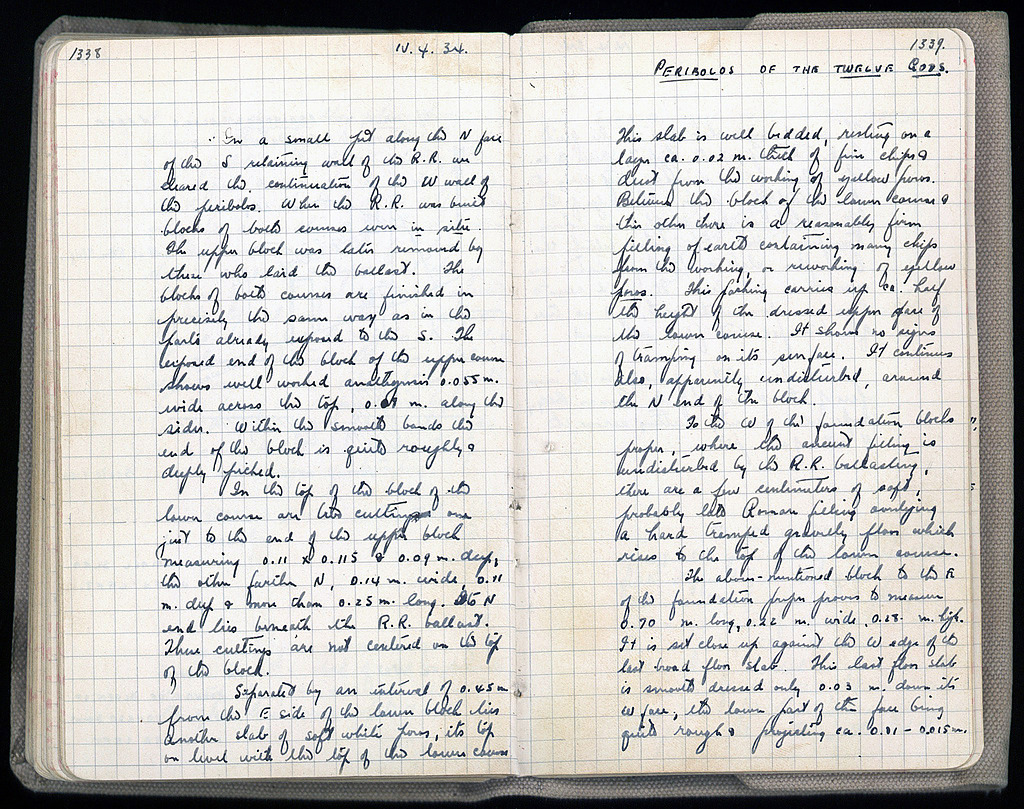 1338
IV. 4. 34.
In a small pit along the N face
of the S retaining wall of the R.R. we
cleared the continuation of the W wall of
the peribolos. When the R.R. was built
blocks of both courses were in situ.
The upper block was later removed by
those who laid the ballast. The
blocks of both courses are finished in
precisely the same way as in the
parts already exposed to the S. The
exposed end of the block of the upper course
shows well worked anathyrosis 0.055 m.
wide across the top, 0.07 m. along the
sides. Within the smooth bands the
end of the block is quite roughly &
deeply picked.
In the top of the block of the
lower course are two cuttings one
just to the end of the upper block
measuring 0.11 x 0.115 & 0.09 m. deep,
the other farther N, 0.14 m. wide, 0.11
m. deep & more than 0.25 m. long. Its N
end lies beneath the R.R. ballast.
These cuttings are not centered on the top
of the block.
Separated by an interval of 0.45 m
from the E side of the lower block lies
another slab of soft white poros, its top
on level with the top of the lower course
1339.
PERIBOLOS OF THE TWELVE GODS.
This slab is well bedded, resting on a
layer ca. 0.02 m. thick of fine chips &
dust from the working of yellow poros.
Between the block of the lower course &
this other there is a reasonably firm
filling of earth containing many chips
from the working, or reworking of yellow
poros. This packing carries up ca. half
the height of the dressed upper face of
the lower course. It shows no signs
of tramping on its surface. It continues
also, apparently undisturbed, around
the N end of the block.
To the W of the foundation blocks
proper, where the ancient filling is
undisturbed by the R.R. ballasting,
there are a few centimeters of soft,
probably late Roman filling overlying
a hard tramped gravelly floor which
rises to the top of the lower course.
The above-mentioned block to the E
of the foundation proper proves to measure
0.70 m. long, 0.22 m. wide, 0.28 m. high.
It is set close up against the W edge of the
last broad floor slab. This last floor slab
is smooth dressed only 0.03 m. down its
W face, the lower part of the face being
quite rough & projecting ca. 0.01 - 0.015 m.